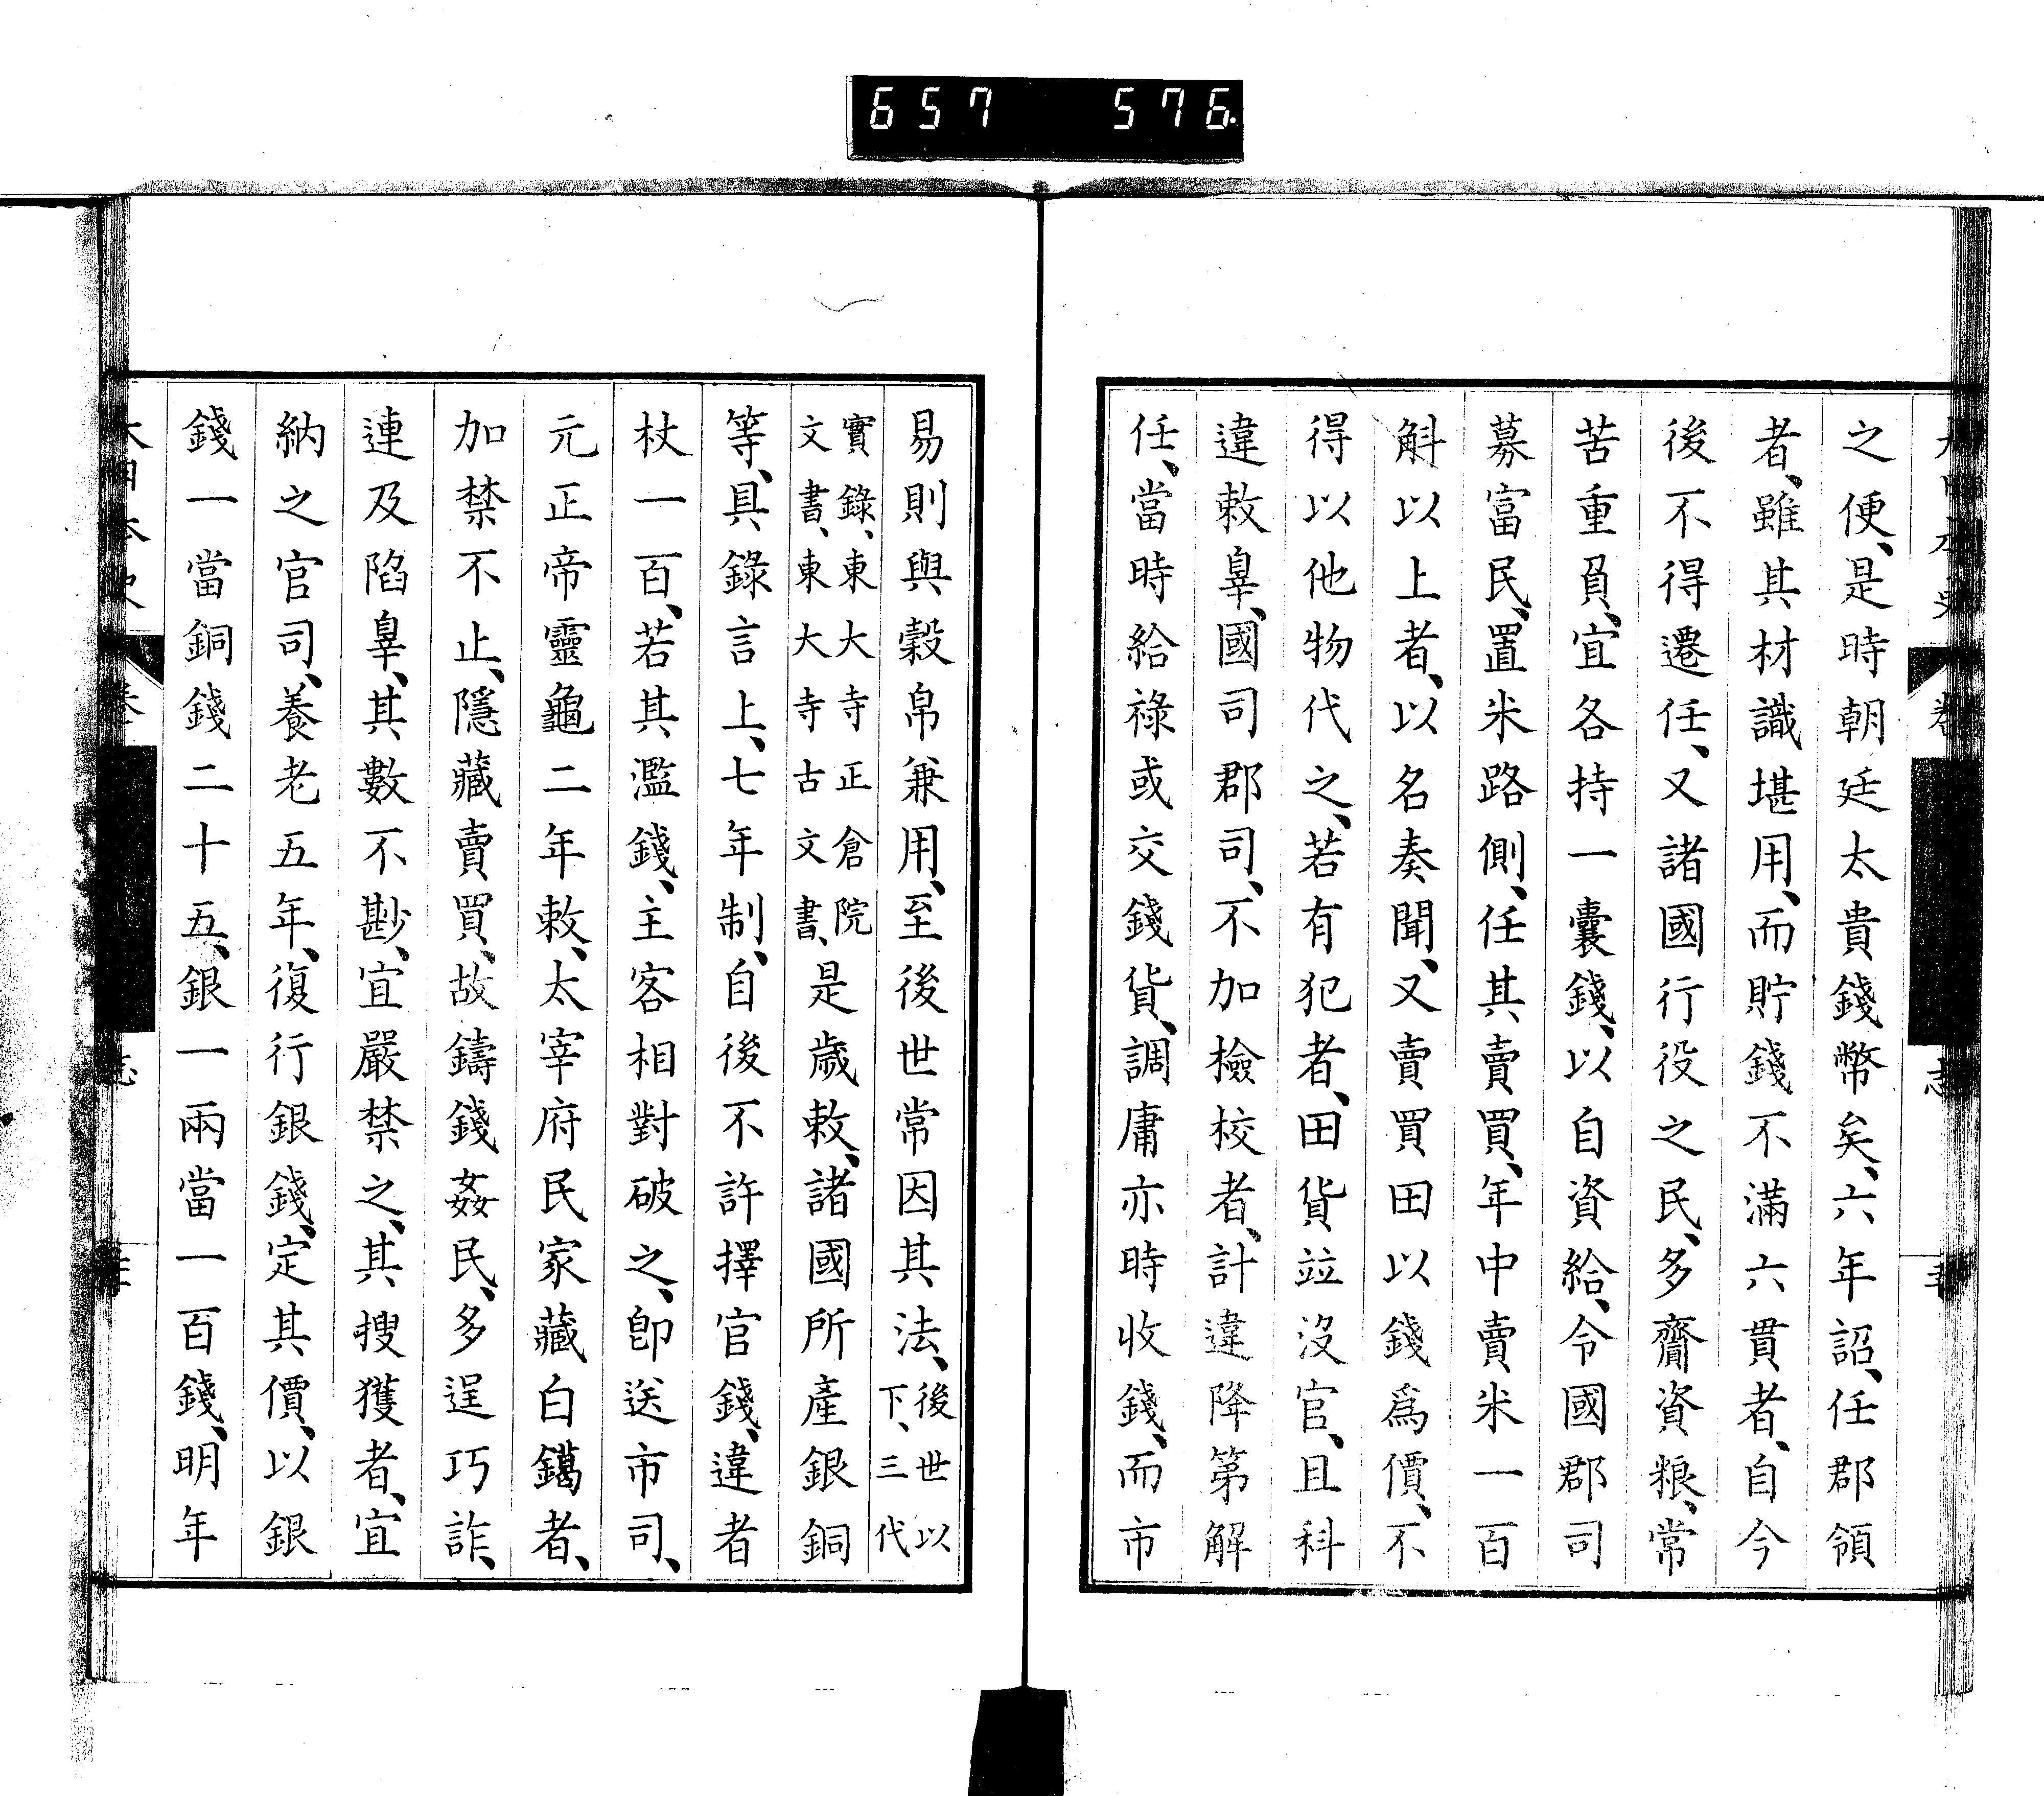 657 576
之便、是時朝廷太貴錢幣矣、六年詔、任郡領
者、雖其材識堪用、而貯錢不滿六貫者、自今
後不得遷任、又諸國行役之民、多齎資粮、常
苦重負、宜各持一囊錢、以自資給、令國郡司
募富民、置米路側、任其賣買、年中賣米一百
斛以上者、以名奏聞、又賣買田以錢爲價、不
得以他物代之、若有犯者、田貨竝沒官、且科
違敕辠、國司郡司、不加檢校者、計違降第解
任、當時給祿或交錢貨、調庸亦時收錢、而市
易則與穀帛兼用、至後世常因其法、後世以下、三代
實錄、東大寺正倉院文書、東大寺古文書、是歲敕、諸國所產銀銅
等、具錄言上、七年制、自後不許擇官錢、違者
杖一百、若其濫錢、主客相對破之、卽送市司、
元正帝靈龜二年敕、太宰府民家藏白鑞者、
加禁不止、隱藏賣買、故鑄錢姦民、多逞巧詐、
連及陷辠、其數不尠、宜嚴禁之、其搜獲者、宜
納之官司、養老五年、復行銀錢、定其價、以銀
錢一當銅錢二十五、銀一兩當一百錢、明年